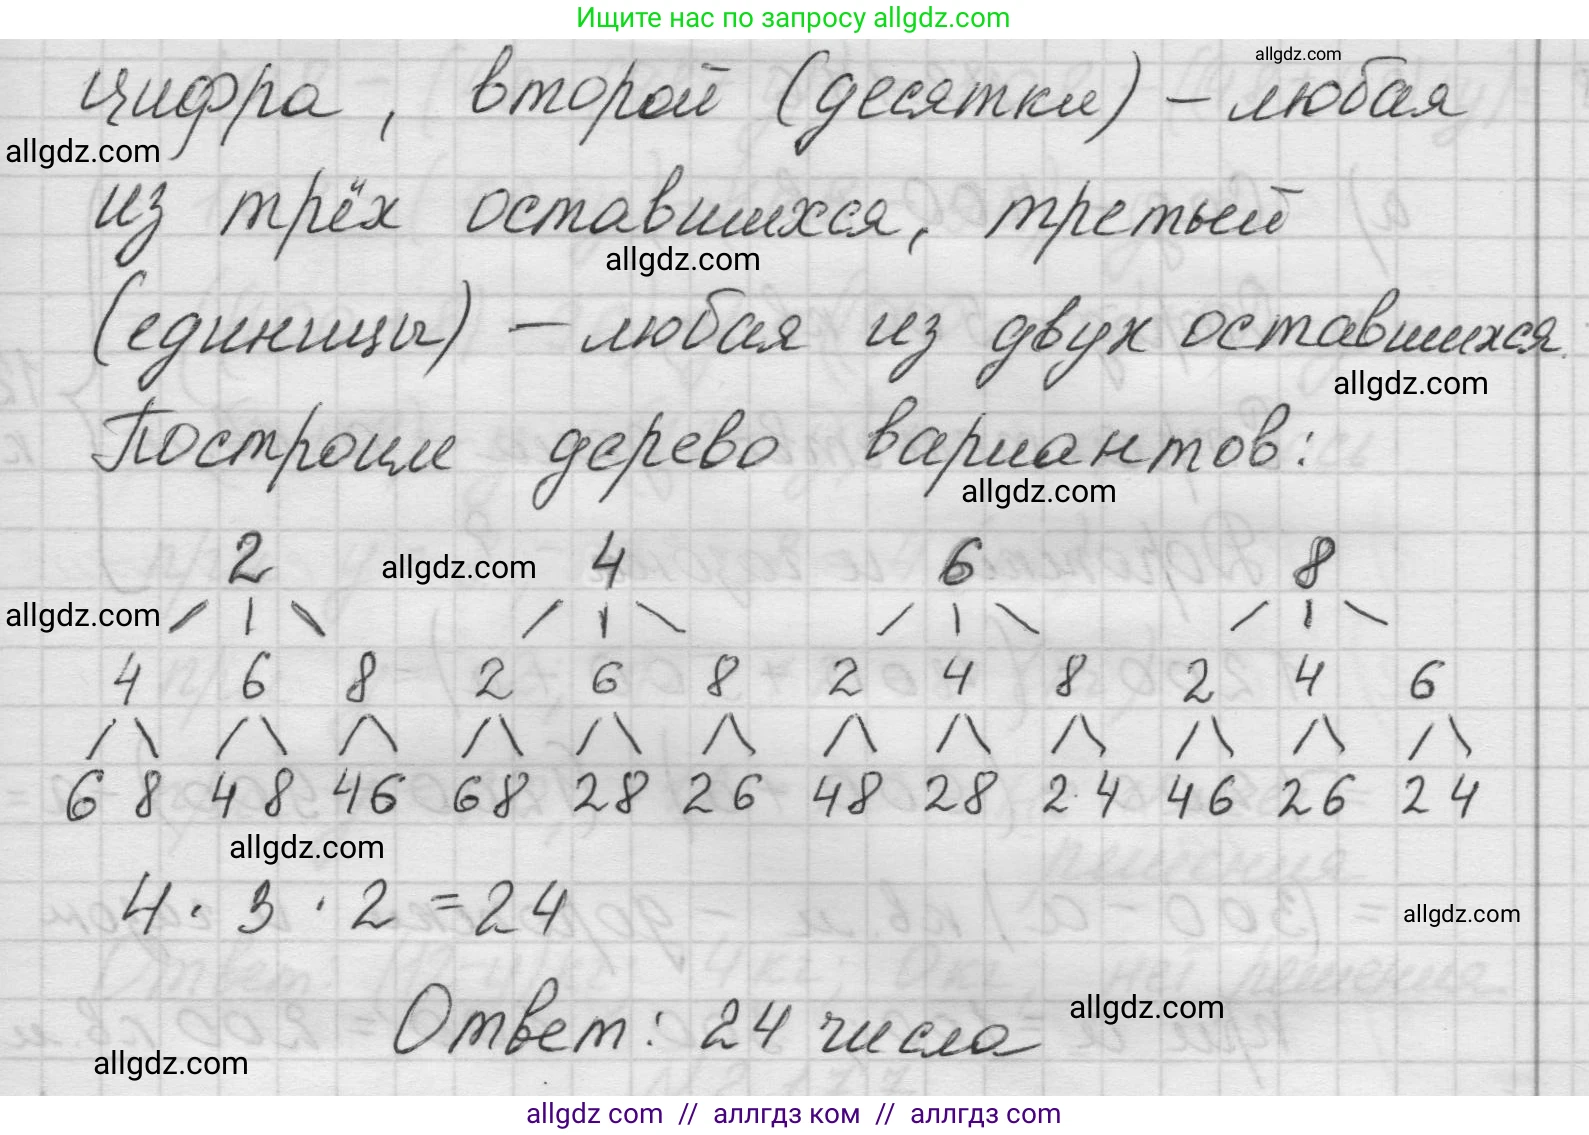 Ищите нас по запросу allgdz.com
allgdz.com
цифра, второй (десятки) – любая
allgdz.com
из трёх оставшихся, третьей
allgdz.com
(единицы) – любая из двух оставшихся.
allgdz.com
Построим дерево вариантов:
allgdz.com
2 4 6 8
allgdz.com
allgdz.com
4 6 8 2 6 8 2 4 8 2 4 6
6 8 4 8 4 6 6 8 2 8 2 6 4 8 2 8 2 4 4 6 2 6 2 4
allgdz.com
4 · 3 · 2 = 24
allgdz.com
Ответ: 24 числа
allgdz.com
allgdz.com
allgdz com // аллгдз ком // аллгдз com